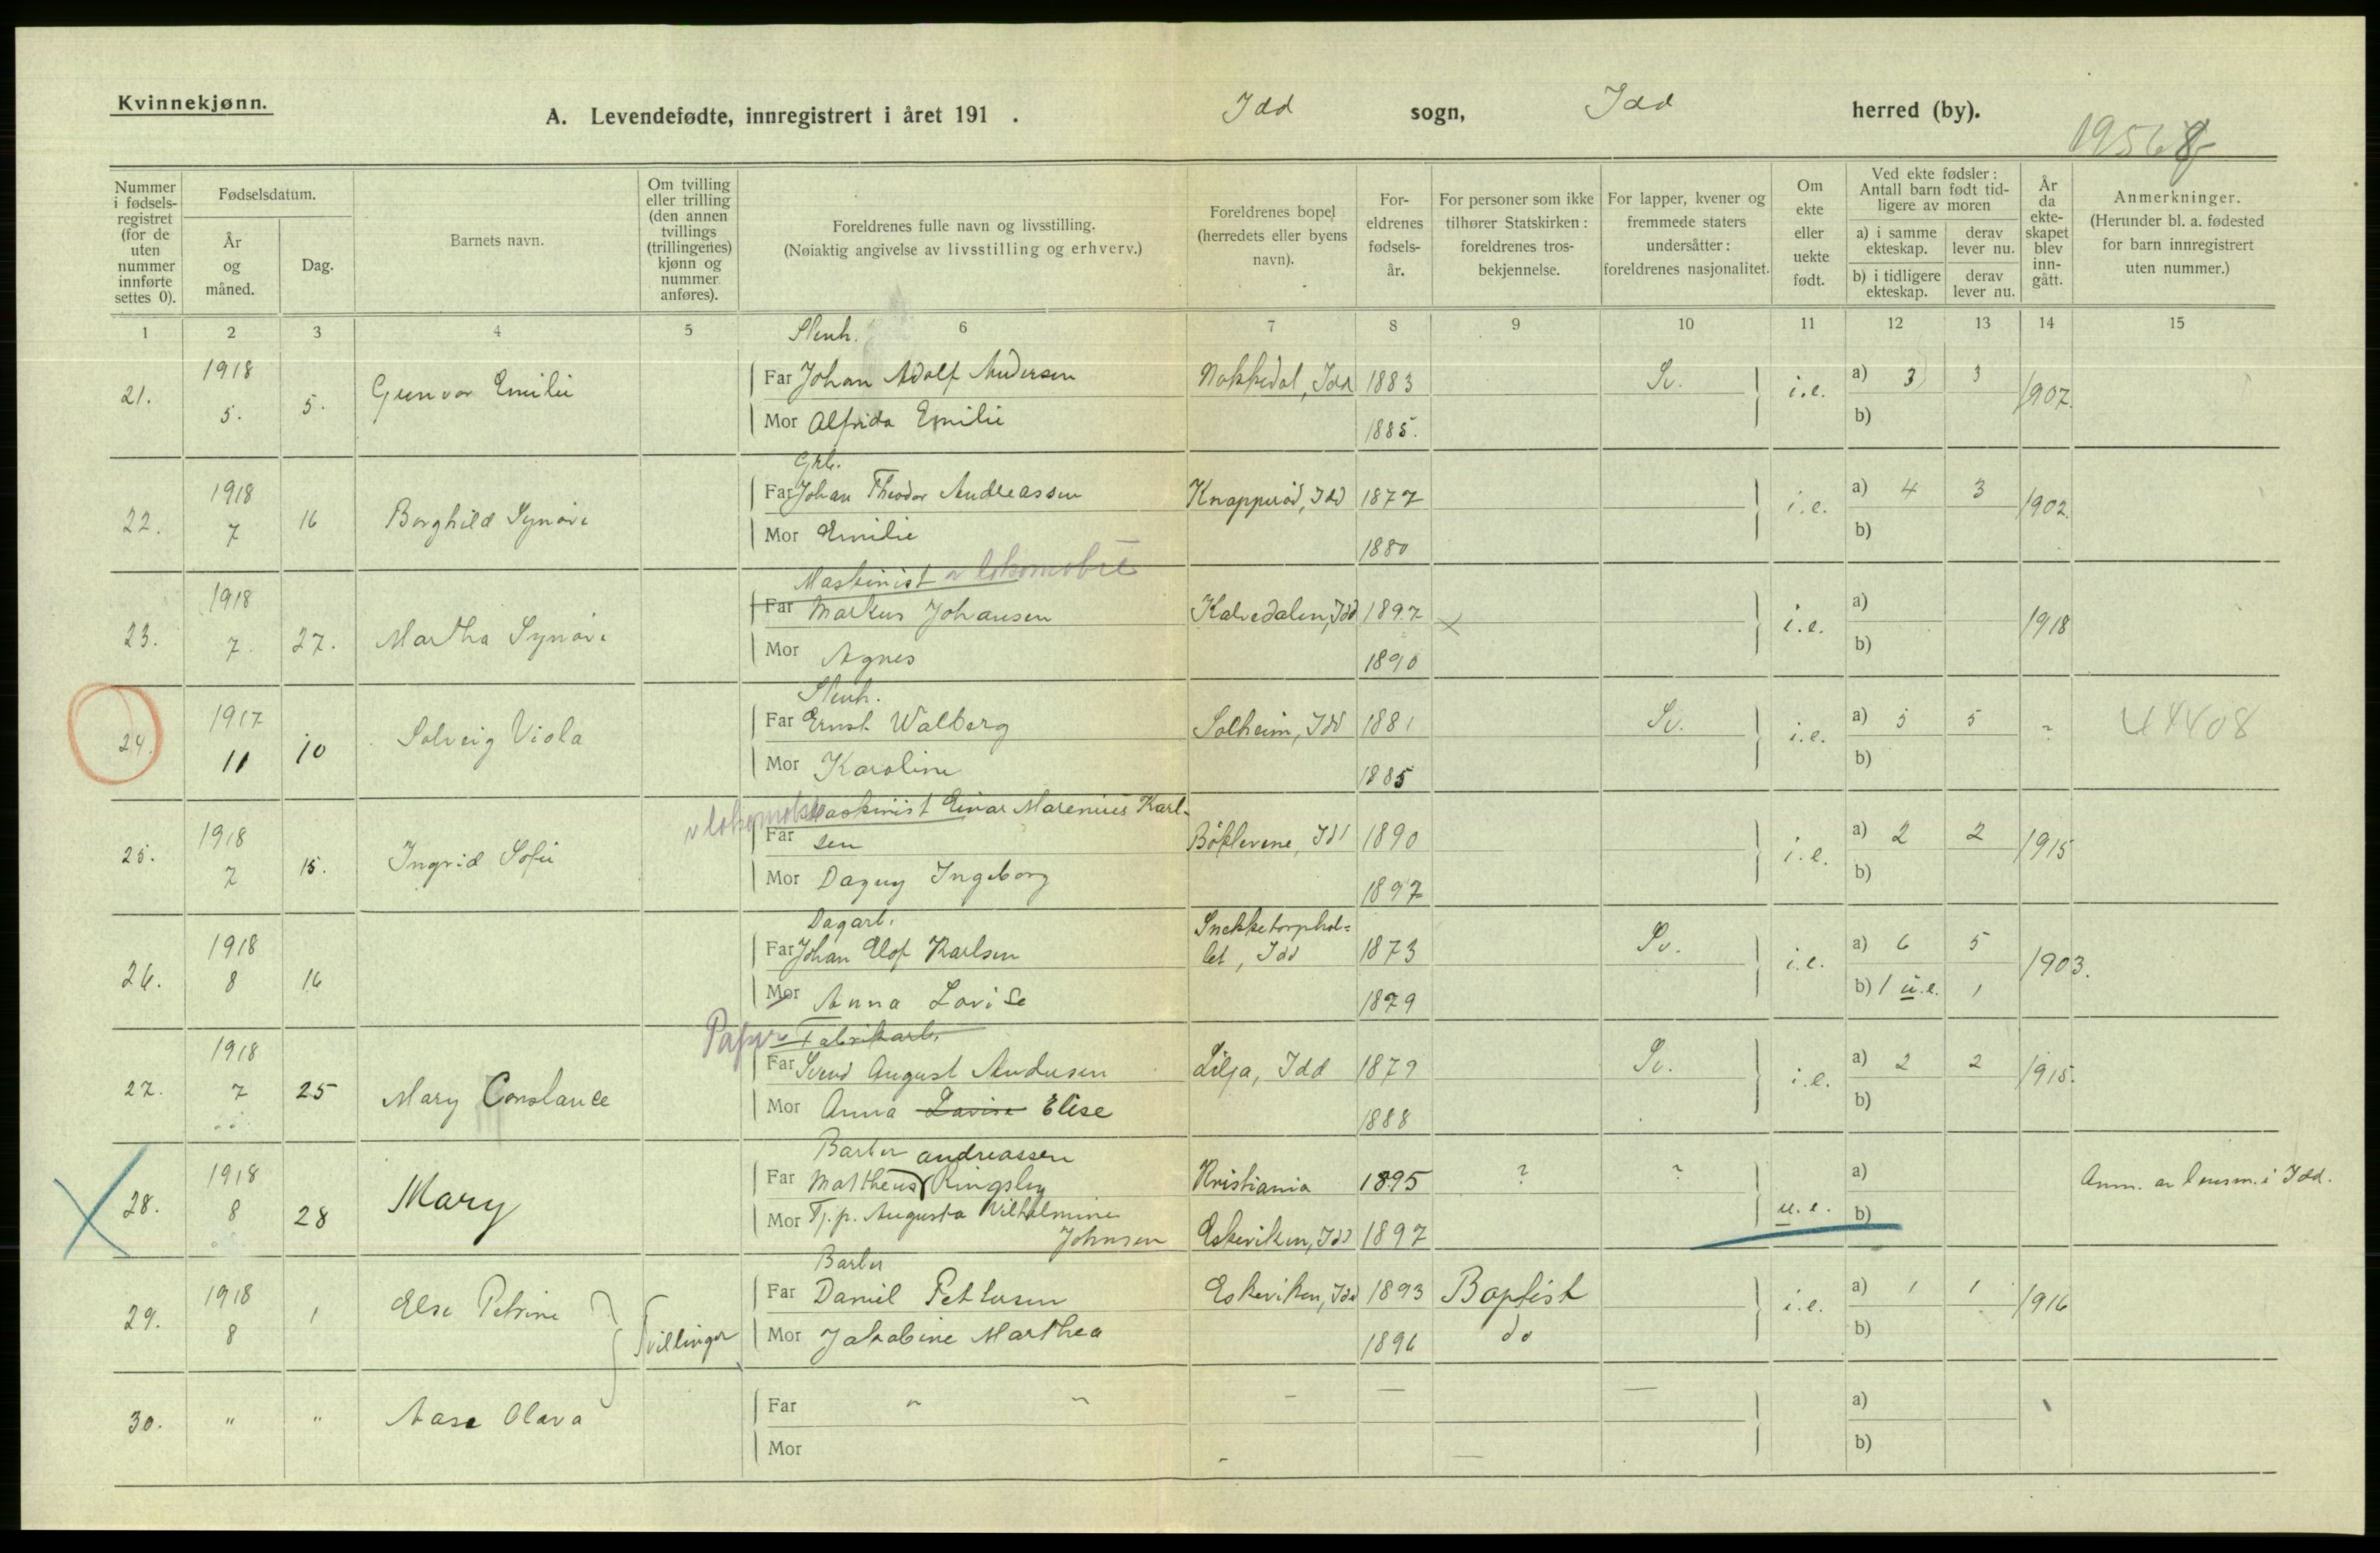 Kvinnekjønn.
A. Levendefødte, innregistrert i året 191 . Idd sogn, Idd herred (by).
Nummer i fødsels-registret (for de uten nummer innførte settes 0).
Fødselsdatum.
År og måned.
Dag.
Barnets navn.
Om tvilling eller trilling (den annen tvillings (trillingenes) kjønn og nummer anføres).
Foreldrenes fulle navn og livsstilling.
(Nøiaktig angivelse av livsstilling og erhverv.)
Foreldrenes bopel (herredets eller byens navn).
For-eldrenes fødsels-år.
For personer som ikke tilhører Statskirken: foreldrenes tros-bekjennelse.
For lapper, kvener og fremmede staters undersåtter: foreldrenes nasjonalitet.
Om ekte eller uekte født.
Ved ekte fødsler: Antall barn født tid-ligere av moren
a) i samme ekteskap.
derav lever nu.
b) i tidligere ekteskap.
derav lever nu.
År da ekte-skapet blev inn-gått.
Anmerkninger.
(Herunder bl. a. fødested for barn innregistrert uten nummer.)
1 2 3 4 5 6 7 8 9 10 11 12 13 14 15
Stenh.
21. 1918 5. 5. Gunvor Emilie Far Johan Adolf Andersen Nokkedal, Idd 1883 Sv. i.e. a) 3 3 1907.
Mor Alfrida Emilie 1885. b)
Grb.
22. 1918 7 16 Borghild Synøve Far Johan Theodor Andreassen Knapperød, Idd 1877 i.e. a) 4 3 1902.
Mor Emilie 1880 b)
Maskinist v lokomobil
23. 1918 7. 27. Martha Synøve Far Markus Johansen Kalvedalen, Idd 1897 x i.e. a) 1918
Mor Agnes 1890 b)
Stenh.
24. 1917 11 10 Solveig Viola Far Ernst Walberg Solheim, Idd 1881 Sv. i.e. a) 5 5 ? 44408
Mor Karoline 1885 b)
v lokomobil Maskinist Einar Marenius Karl-
25. 1918 7 15. Ingrid Sofie Far sen Bøklevene, Idd 1890 i.e. a) 2 2 1915
Mor Dagny Ingeborg 1897 b)
Dagarb. Snekketorphol=
26. 1918 8 16 Far Johan Elof Karlsen let, Idd 1873 Sv. i.e. a) 6 5 1903.
Mor Anna Lovise 1879 b) 1 u.e. 1
Papir Fabrikarb.
27. 1918 7 25 Mary Constance Far Svend August Andersen Lilja, Idd 1879 Sv. i.e. a) 2 2 1915.
Mor Anna Lovise Elise 1888 b)
Barber andreassen
28. 1918 8 28 Mary Far Mattheus Ringsby Kristiania 1895 ? ? u.e. a) Anm. av lensm. i Idd.
Mor Tj.p. Augusta Vilhelmine
Johnsen Eskeviken, Idd 1897 b)
Barber
29. 1918 8 1 Else Petrine Tvillinger Far Daniel Pettersen Eskeviken, Idd 1893 Baptist i.e. a) 1 1 1916
Mor Jakobine Marthea 1896 do b)
30. " " Aase Olava Far " " — — — a)
Mor b)